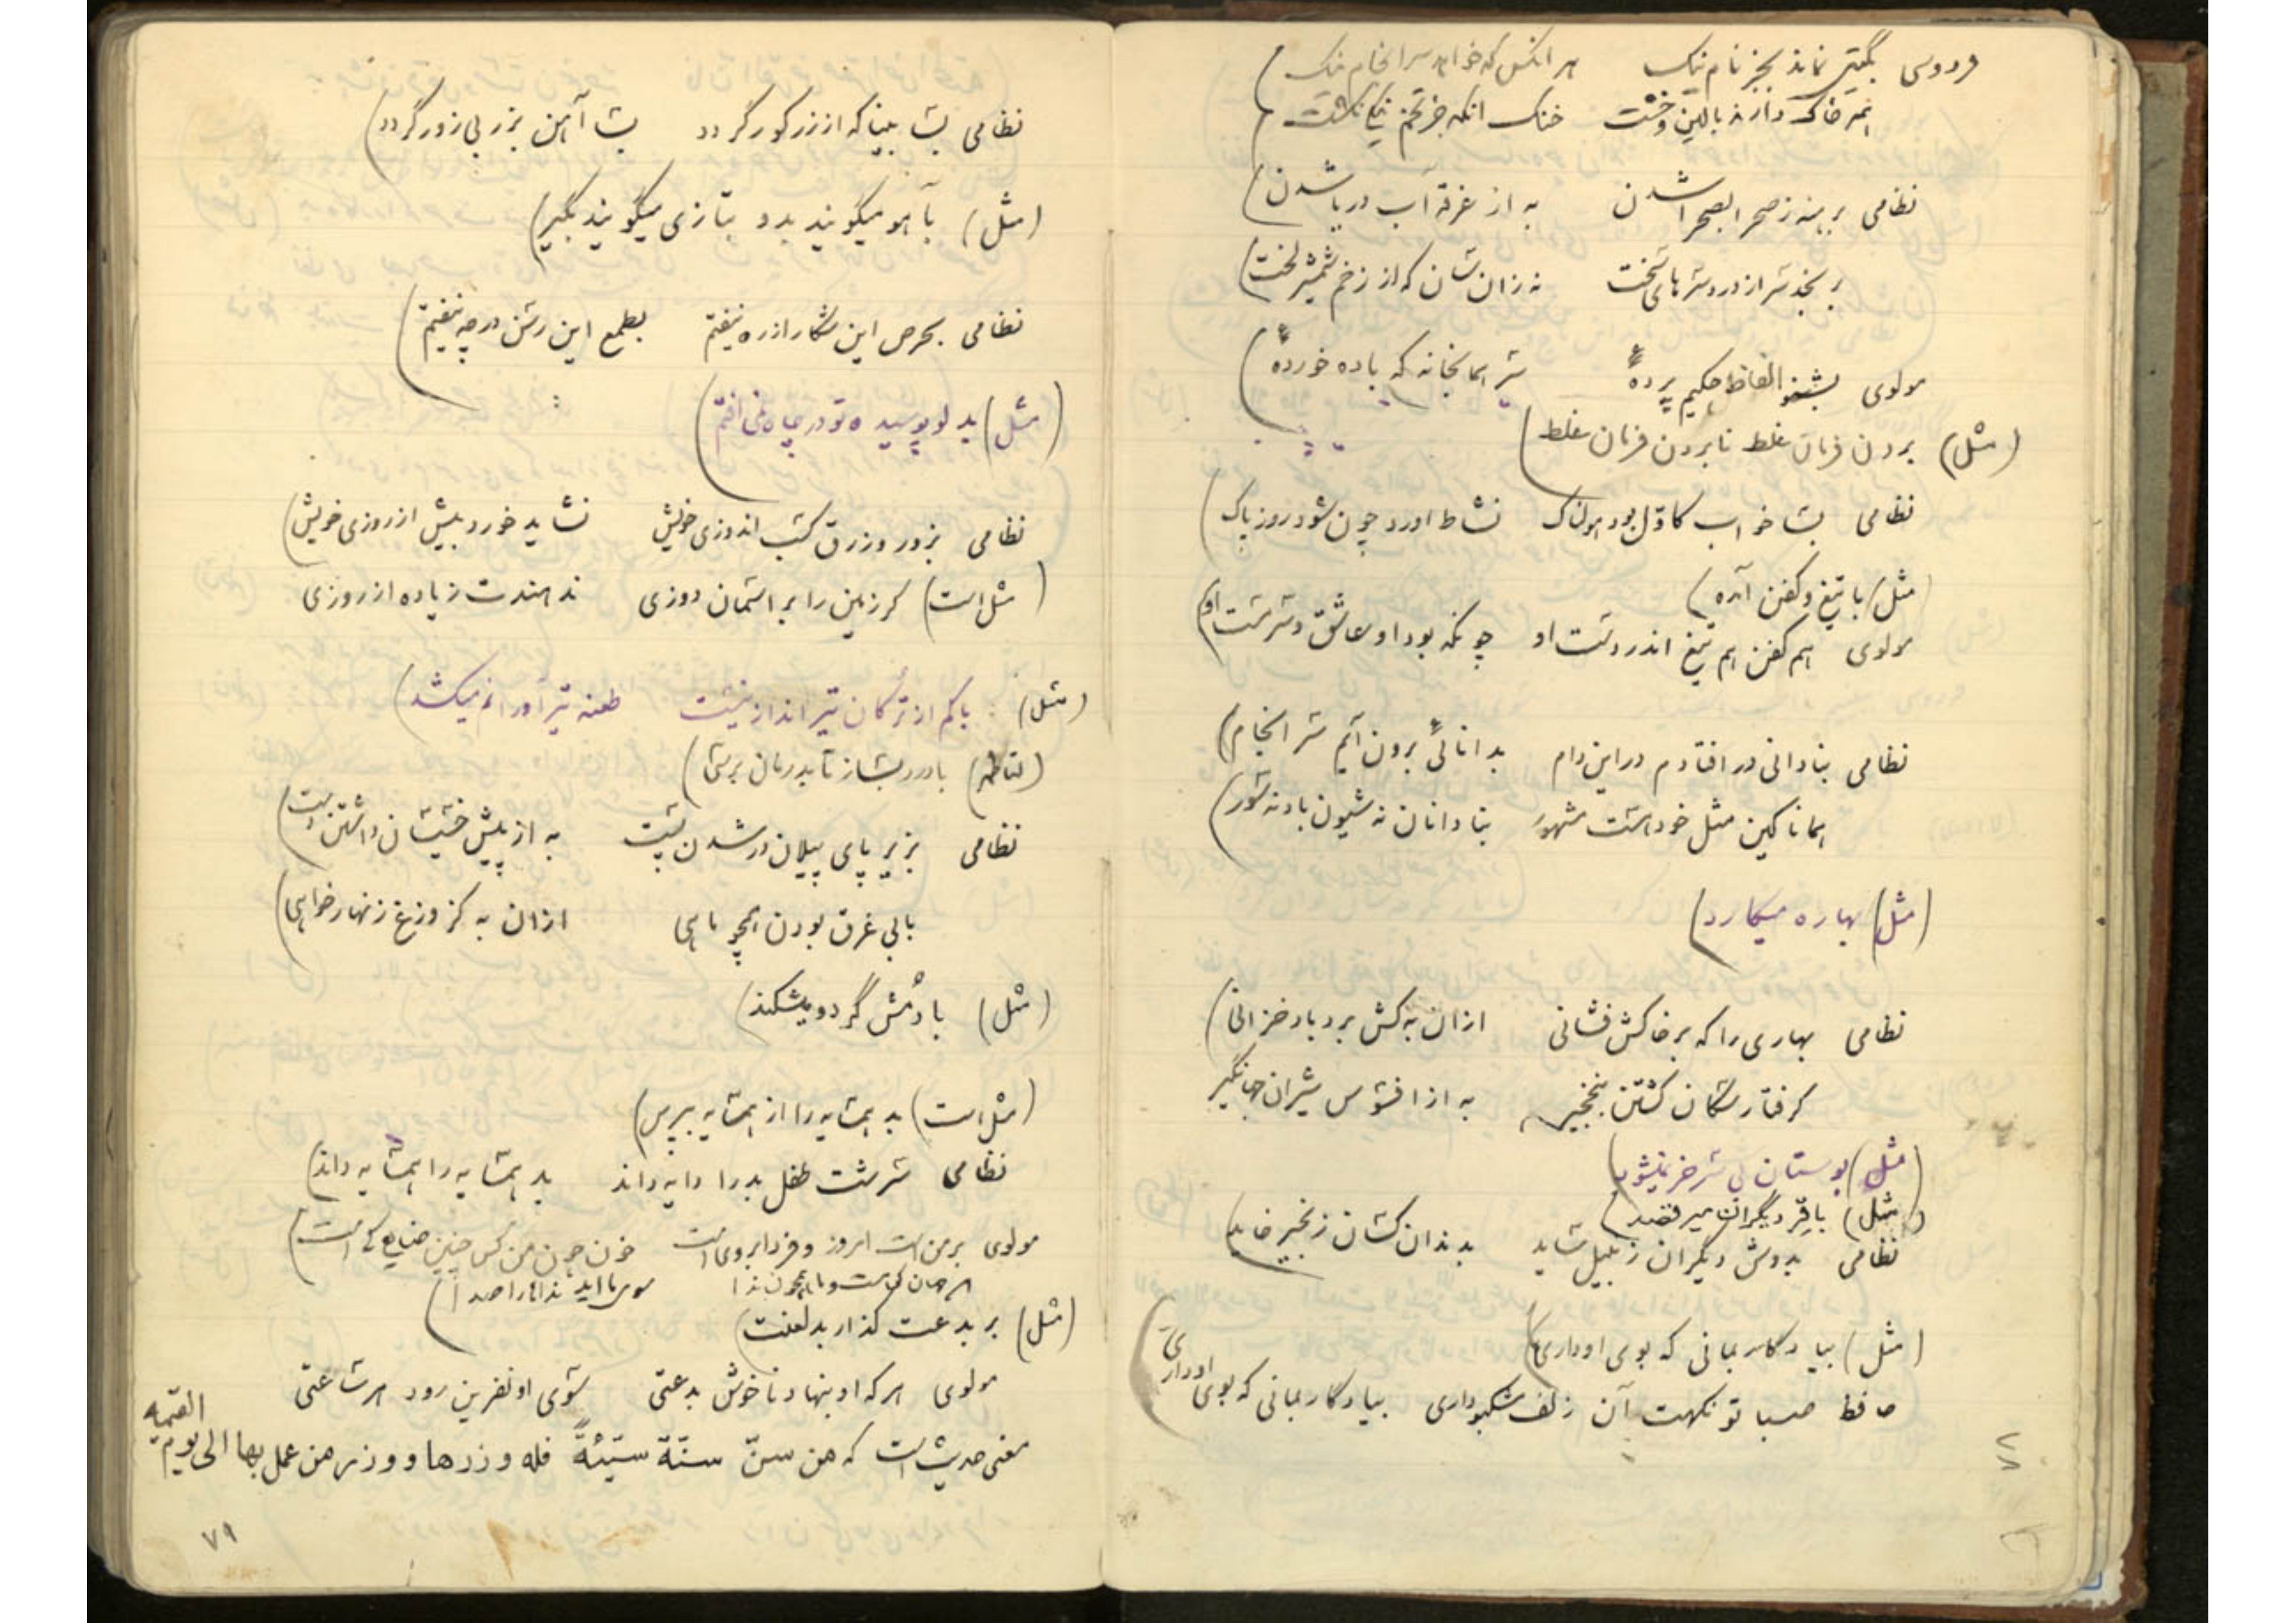 فردوسی بگیتی نماند بجز نام نیک هر انکس که خواهد سرانجام نیک
همه خاک دارند بالین و خشت خنک انکه جز تخم نیکی نکشت
نظامی برهنه ز صحرا بصحرا شدن به از غرقهٔ آب دریا شدن
به از زخم شمشیر لخت
مولوی بشنو الفاظ حکیم پردهٔ سر همانجا نه که باده خوردهٔ
(مثل) بردن فرمان غلط نابردن فرمان غلط
نظامی بسا خواب کاوّل بود هولناک نشاط اورد چون شود روز پاک
(مثل) با تیغ و کفن آمده
مولوی هم کفن هم تیغ اندر دست او چونکه بود او عاشق و سرمست او
نظامی بنادانی در افتادم در این دام بدانائی برون آیم سرانجام
همانا کین مثل خود است مشهور بنادانان نه شیون باد نه سور
(مثل) بهاره میکارد
نظامی بهاری را که بر خاکش فشانی ازان به کش برد باد خزانی
گرفتار سگان گشتن بنخجیر به از افسوس شیران جهانگیر
(مثل) بوستان بی سر خر نمیشود
(مثل) با قر دیگران میرقصد
نظامی بدوش دیگران زنبیل ساید بدندان کسان زنجیر خاید
(مثل) بیادگار بمانی که بوی او داری
حافظ صبا تو نکهت آن زلف مشکبو داری بیادگار بمانی که بوی او داری
نظامی بسا بینا که از زر کور گردد بسا آهن بزر بی زور گردد
(مثل) بآهو میگویند بدو بتازی میگویند بگیر
نظامی بحرص این شکار از ره نیفتم بطمع این رسن در چه نیفتم
(مثل) بدلو پوسیده تو در چاه نمی افتم
نظامی بزور و زرق کسب اندوزی خویش نشاید خورد بیش از روزی خویش
(مثل است) گر زمین را بر اسمان دوزی ندهندت زیاده از روزی
(مثل) باکم از ترکان تیر انداز نیست طعنه تیر آورانم میکشد
(لناظمه) با درد بساز تا بدرمان برسی
نظامی بزیر پای پیلان در شدن پست به از پیش خسیسان داشتن دست
بابی غرق بودن همچو ماهی ازان به کز وزغ زنهار خواهی
(مثل) با دُمش گردو میشکند
(مثل است) بد همسایه را از همسایه بپرس
نظامی سرشت طفل بد را دایه داند بد همسایه را همسایه داند
مولوی بر من است امروز و فردا بر وی است خون چون من کس چنین ضایع کی است
این جهان کوهست و ما فعل ندا سوی ما اید نداها را صدا
(مثل) بر بدعت گذار بد لعنت
مولوی هر که او بنهاد ناخوش بدعتی سوی او نفرین رود هر ساعتی
معنی حدیث است که من سنّ سنّة سیّئةً فله وزرها و وزر من عمل بها الی یوم القیمه
۷۹